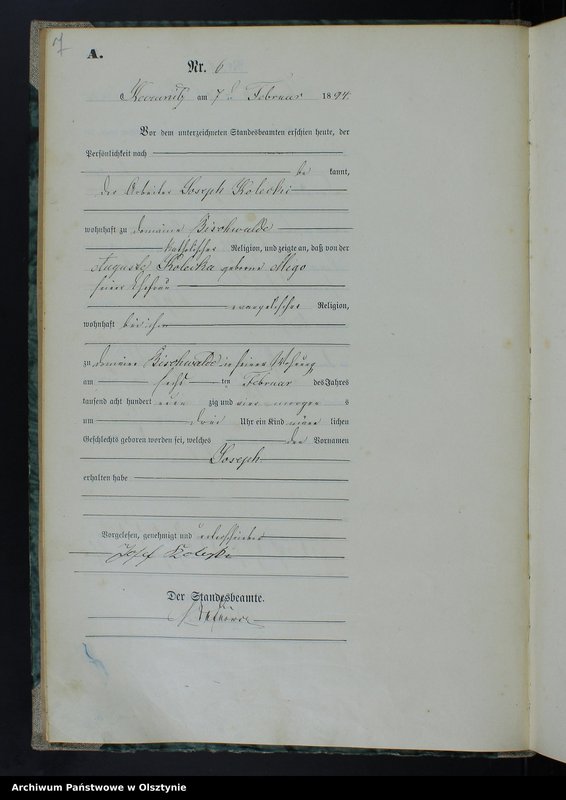 7
A.
Nr. 6
am 7ten Februar 1894.
Vor dem unterzeichneten Standesbeamten erschien heute, der
Persönlichkeit nach
be kannt,
der Arbeiter Joseph Kolecki
wohnhaft zu Domaine Bischwalde
katholischer Religion, und zeigte an, daß von der
Auguste Kolecka geborene Migo
seiner Ehefrau
evangelischer Religion,
wohnhaft bei ihm
zu Domaine Bischwalde in seiner Wohnung
am sechs ten Februar des Jahres
tausend acht hundert neun zig und vier morgen s
um drei Uhr ein Kind männ lichen
Geschlechts geboren worden sei, welches den Vornamen
Joseph
erhalten habe
Vorgelesen, genehmigt und unterschrieben
Josef Kolecki
Der Standesbeamte.
Archiwum Państwowe w Olsztynie